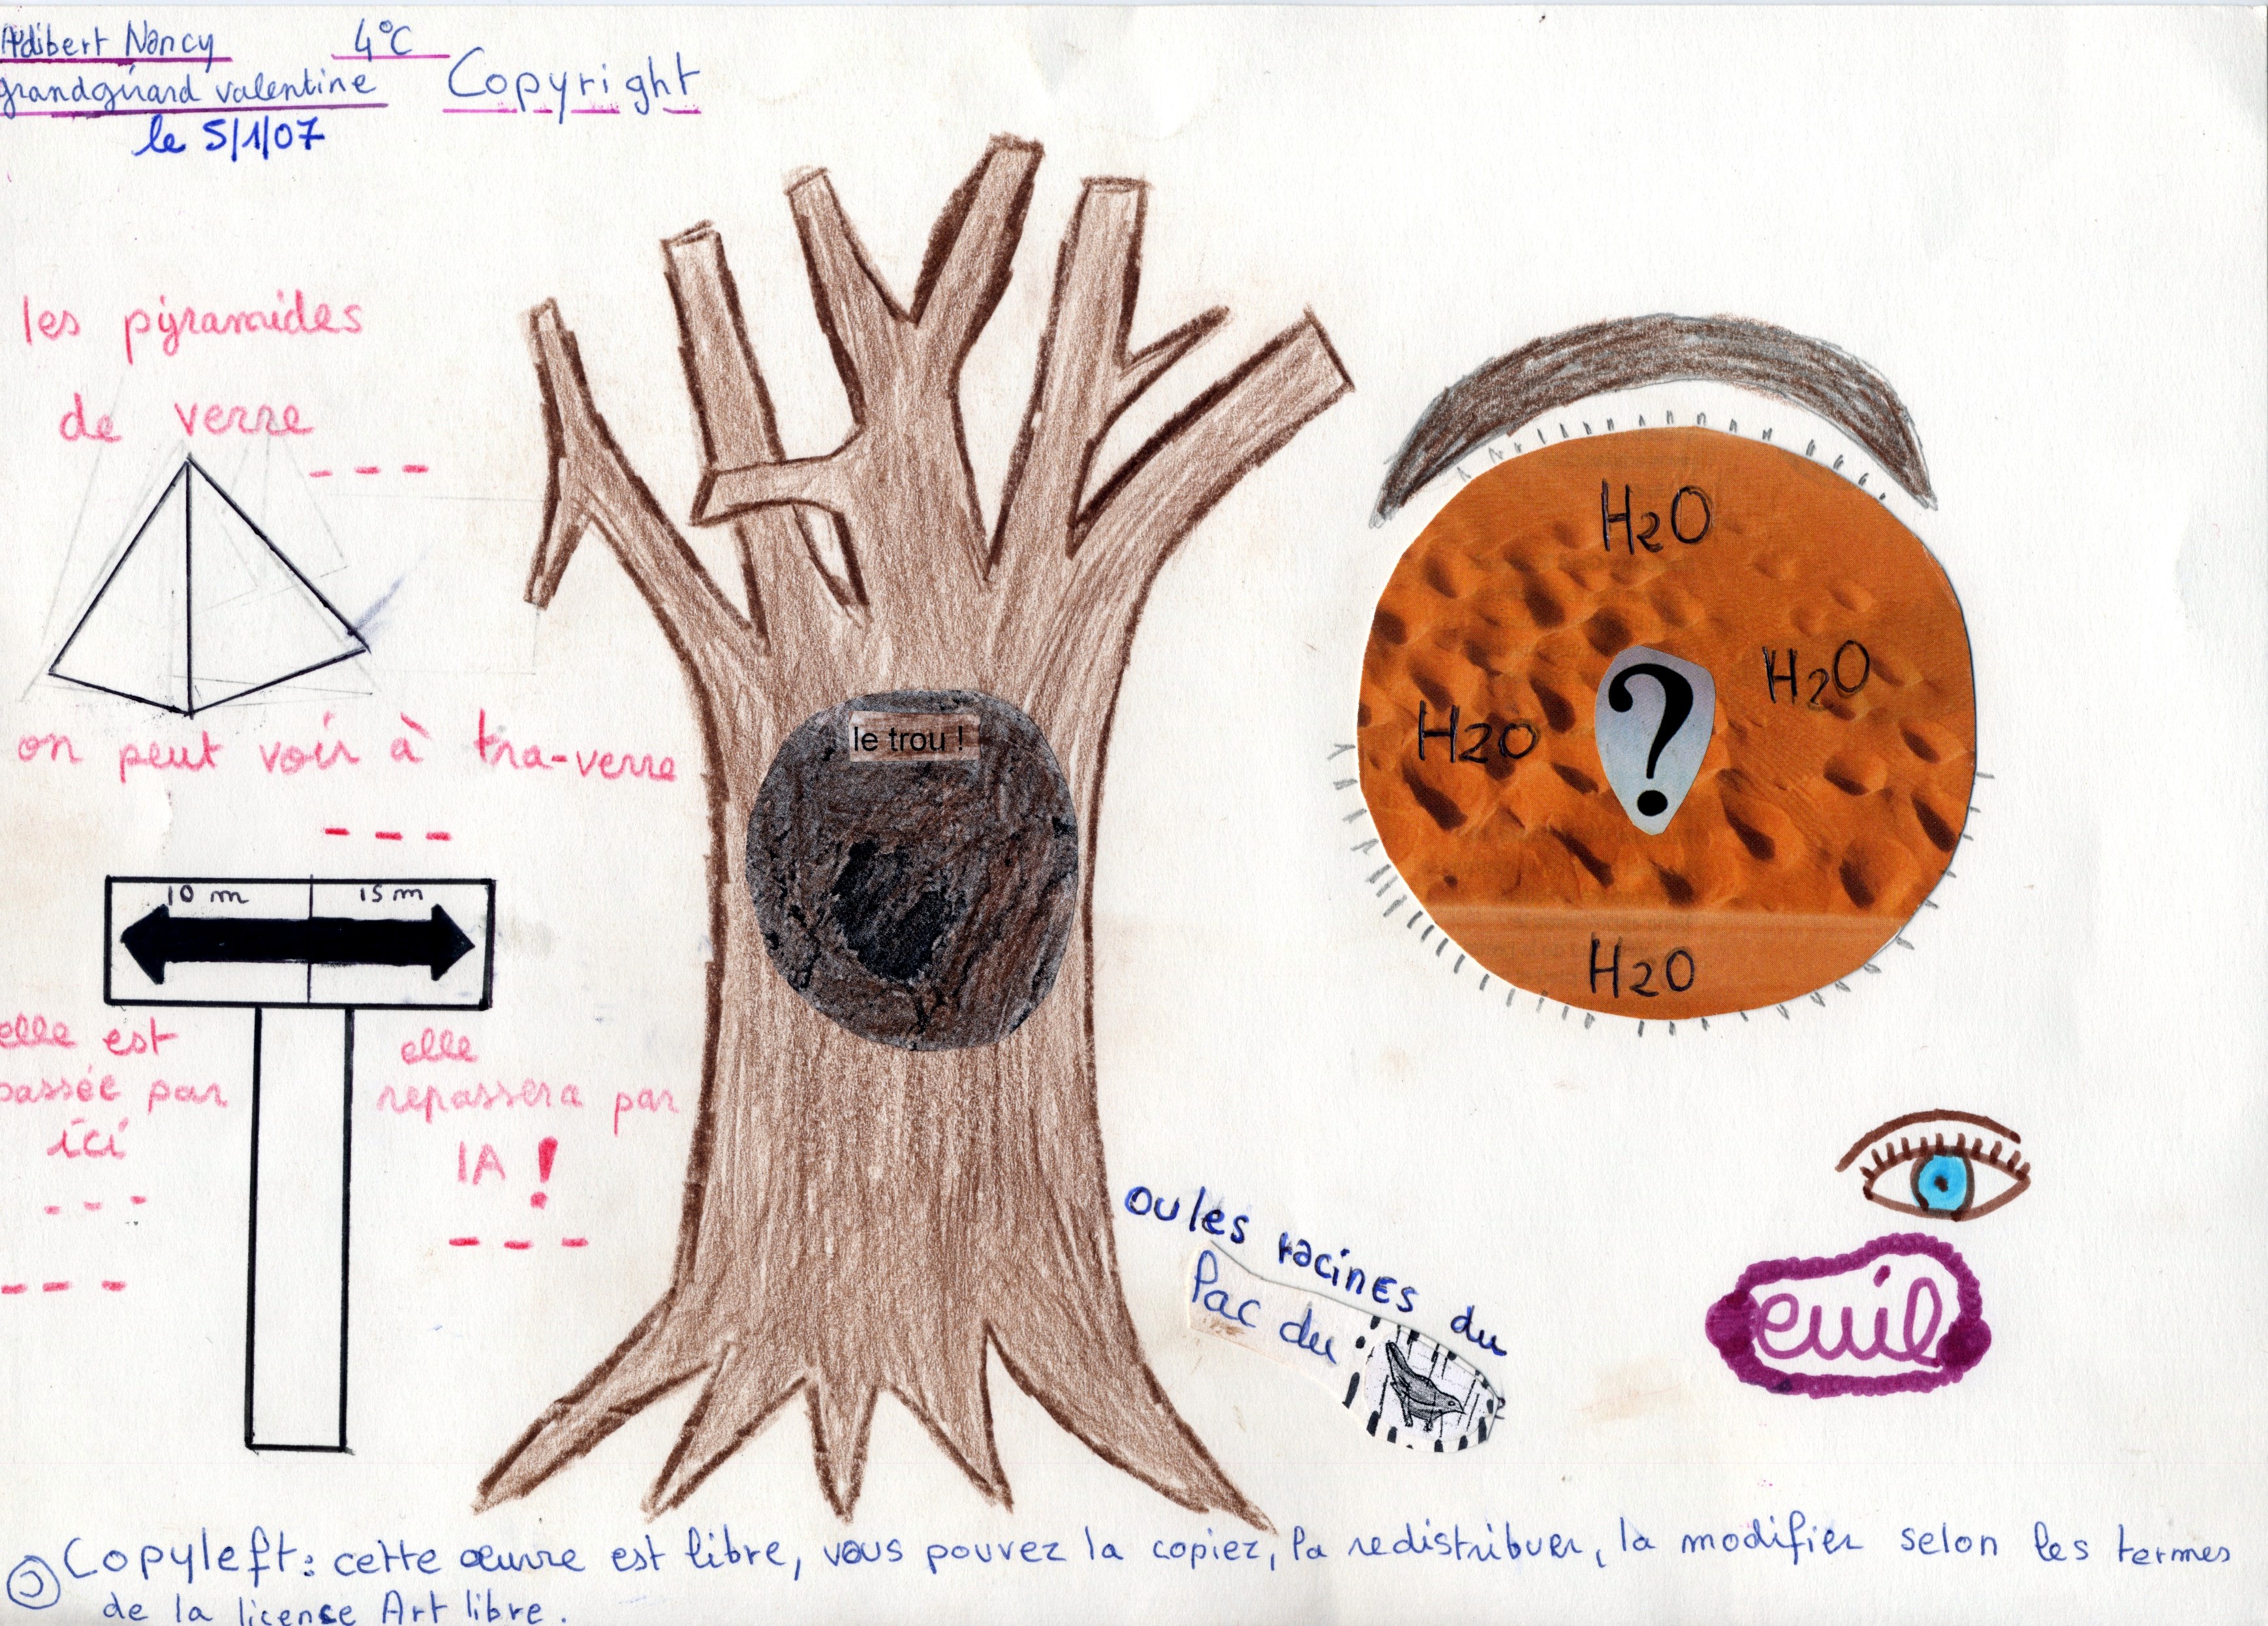 Adibert Nancy 4°C
grandgirard valentine
le 5/1/07
Copyright
les pyramides
de verre
---
on peut voir à tra-verre
---
10 m 15 m
elle est
passée par
ici
---
---
elle
repassera par
lA !
---
le trou !
H2O
H2O
H2O
?
H2O
ou les racines du
Pac du
euil
Copyleft: cette œuvre est libre, vous pouvez la copier, la redistribuer, la modifier selon les termes
de la license Art libre.